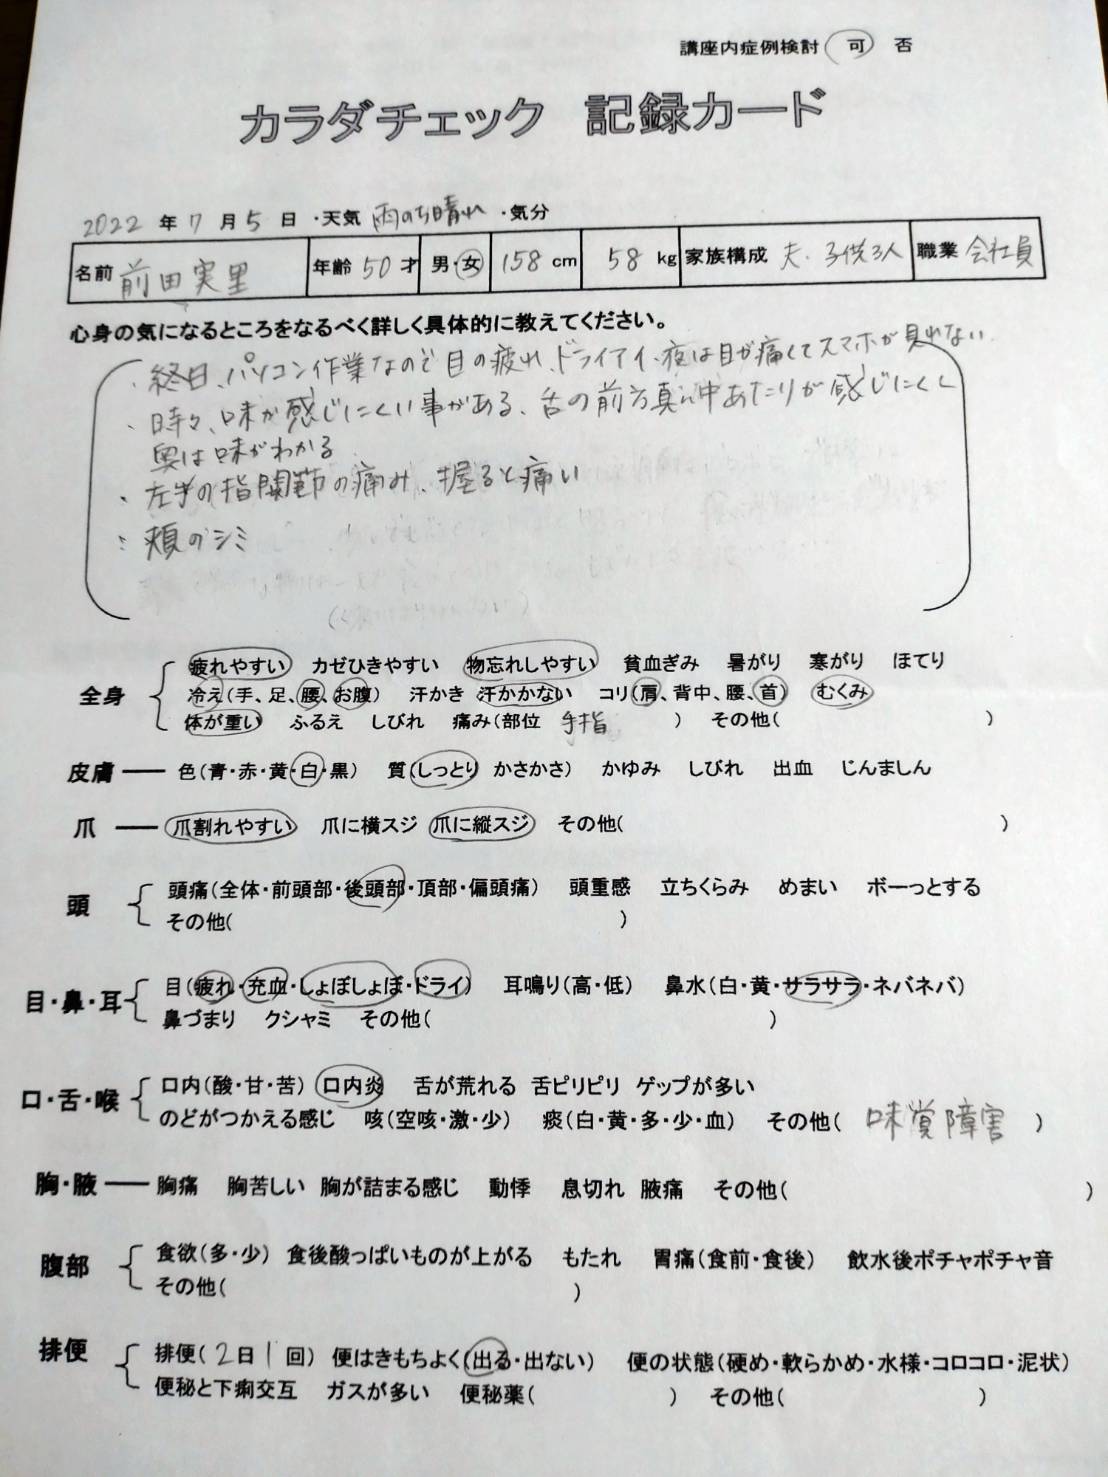 講座内症例検討 可 否
カラダチェック 記録カード
2022 年 7 月 5 日 ・天気 雨のち晴れ ・気分
名前 前田実里 年齢 50 才 男・女 158 cm 58 kg 家族構成 夫・子供3人 職業 会社員
心身の気になるところをなるべく詳しく具体的に教えてください。
・終日、パソコン作業なので目の疲れ、ドライアイ、夜は目が痛くてスマホが見れない
・時々、味が感じにくい事がある、舌の前方真ん中あたりが感じにくく
奥は味がわかる
・左手の指関節の痛み、握ると痛い
・頬のシミ
全身 疲れやすい カゼひきやすい 物忘れしやすい 貧血ぎみ 暑がり 寒がり ほてり
冷え(手、足、腰、お腹) 汗かき 汗かかない コリ(肩、背中、腰、首) むくみ
体が重い ふるえ しびれ 痛み(部位 手指 ) その他( )
皮膚 色(青・赤・黄・白・黒) 質(しっとり かさかさ) かゆみ しびれ 出血 じんましん
爪 爪割れやすい 爪に横スジ 爪に縦スジ その他( )
頭 頭痛(全体・前頭部・後頭部・頂部・偏頭痛) 頭重感 立ちくらみ めまい ボーっとする
その他( )
目・鼻・耳 目(疲れ・充血・しょぼしょぼ・ドライ) 耳鳴り(高・低) 鼻水(白・黄・サラサラ・ネバネバ)
鼻づまり クシャミ その他( )
口・舌・喉 口内(酸・甘・苦) 口内炎 舌が荒れる 舌ピリピリ ゲップが多い
のどがつかえる感じ 咳(空咳・激・少) 痰(白・黄・多・少・血) その他( 味覚障害 )
胸・腋 胸痛 胸苦しい 胸が詰まる感じ 動悸 息切れ 腋痛 その他( )
腹部 食欲(多・少) 食後酸っぱいものが上がる もたれ 胃痛(食前・食後) 飲水後ポチャポチャ音
その他( )
排便 排便( 2日 1 回) 便はきもちよく(出る・出ない) 便の状態(硬め・軟らかめ・水様・コロコロ・泥状)
便秘と下痢交互 ガスが多い 便秘薬( ) その他( )